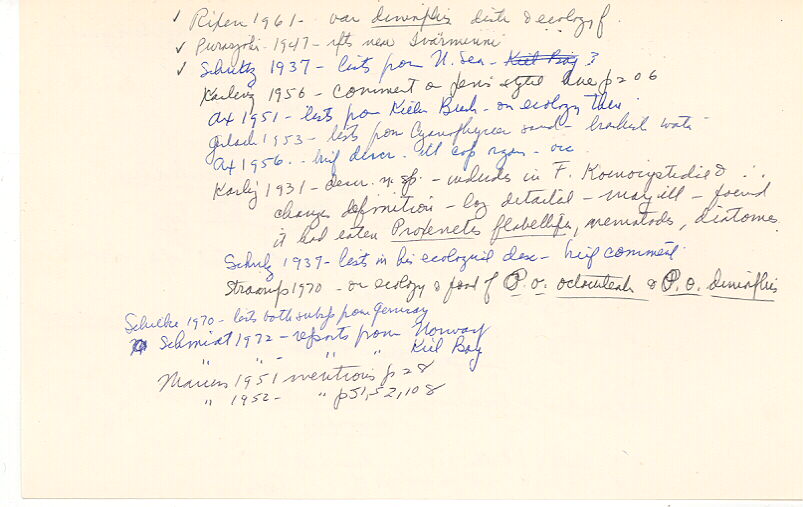 ✓ Rixen 1961 - var dimorphis distr & ecology f.
✓ Purasjoki 1947 - rpts near Tvärminne
✓ Schultz 1937 - lists from N. Sea - Kiel Bay ?
Karling 1956 - comment on penis stylet due p 206
Ax 1951 - lists from Kieler Bucht - on ecology there
Gerlach 1953 - lists from Cyanophycean sand - brackish water
Ax 1956 - brief descr. ill cop organ - occ
Karling 1931 - descr. n. sp. - includes in F.
changes definition - long detailed - many ill - found
it had eaten Proxenetes flabellifer, nematodes, diatoms
Schulz 1939 - lists in his ecological disc - brief comment
Straarup 1970 - on ecology & food of P. o. & P. o. dimorphis
Schilke 1970 - lists both subsp from Germany
Schmidt 1972 - reports from Norway
" " - " " Kiel Bay
Marcus 1951 mentions p 28
" 1952 - " p 51, 52, 108